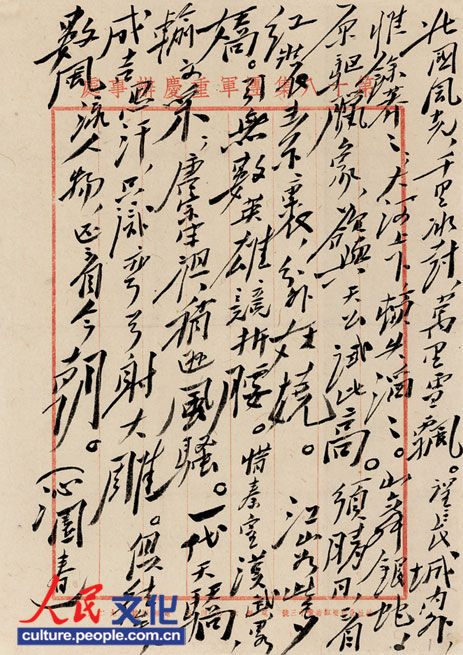 處事辦慶重軍團集八十第
北國風光，千里冰封，萬里雪飄。望長城內外，
惟餘莽々；大河上下，頓失滔々。山舞銀蛇，
原驅臘象，欲與天公試比高。須晴日，看
紅裝素裹，分外妖嬈。江山如此多
嬌。引無數英雄競折腰。惜秦皇漢武略
輸文采；唐宗宋祖，稍遜風騷。一代天驕，
成吉思汗，只識彎弓射大雕。俱往矣，
數風流人物，还看今朝。（沁園春
人民网 文化
culture.people.com.cn